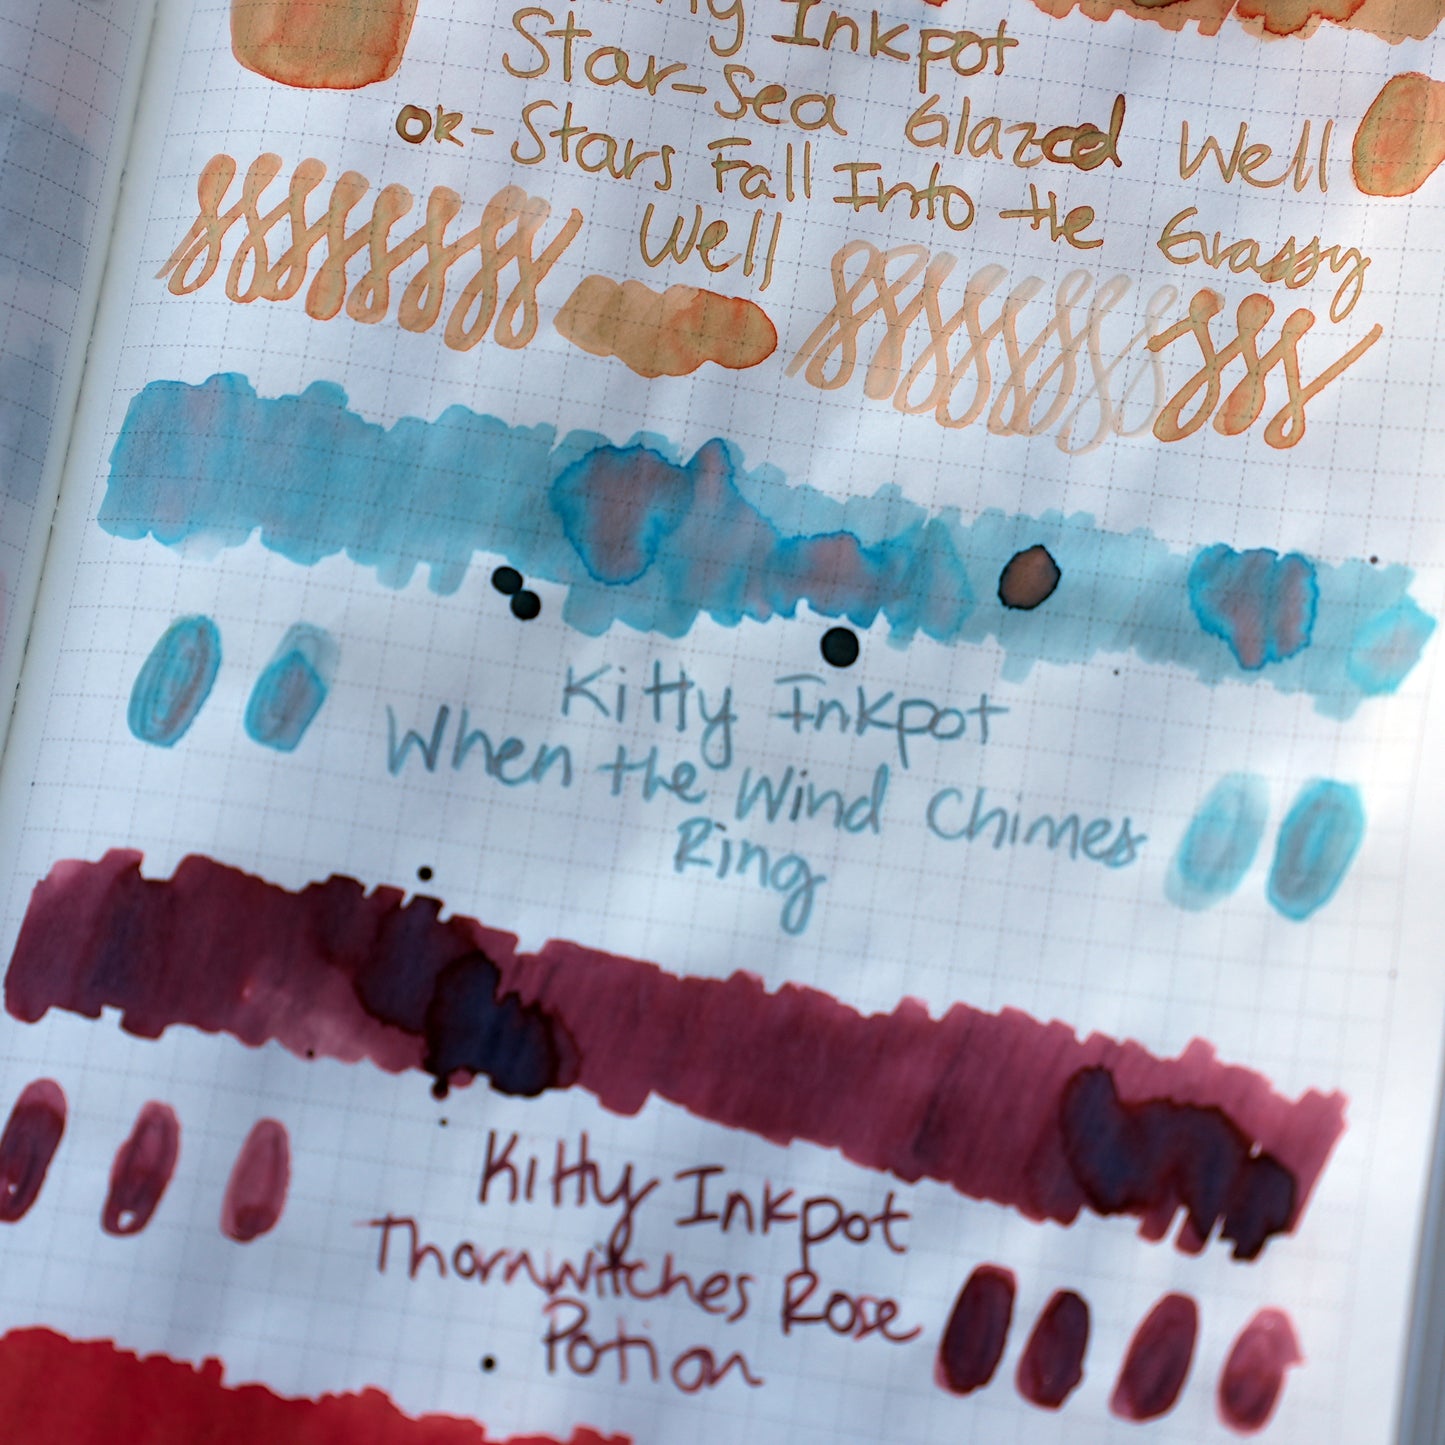 Inkpot
Star-Sea Glazed Well
OR- Stars Fall Into the Grassy
Well
Kitty Inkpot
When the Wind Chimes
Ring
Kitty Inkpot
Thornwitches Rose
Potion